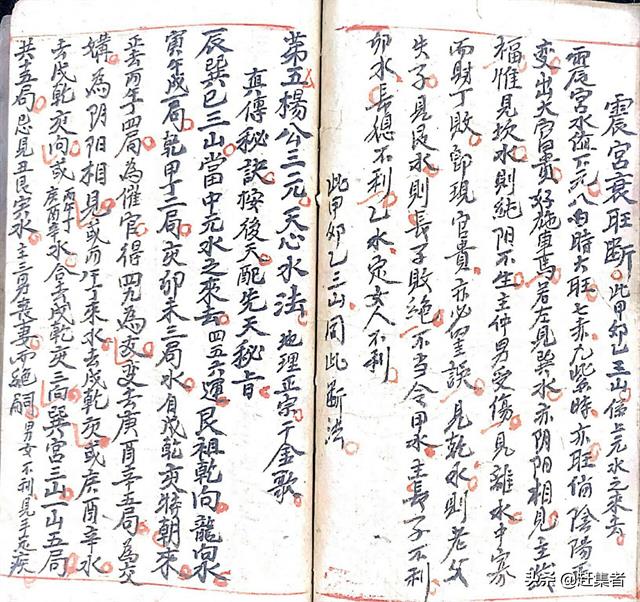 震宮衰旺断 此甲卯乙三山偹上元水之來去
震宮水值下元八白時大旺七赤九紫時亦旺倘陰陽
变出大官貴 若左見巽水亦阴阳相見主
福惟見坎水則純阳不生主仲男受傷見離水中寡
而財丁敗 即現官貴亦必 誤 見乾水則老父
失子見艮水則長子敗絶不当令甲水主長子不利
卯水長媳不利乙水定女人不利
此甲卯乙三山同此断法
第五楊公三元天心水法 地理正宗于金歌
真傳秘訣按後天配先天秘旨
辰巽巳三山當中元水之來去四五六運艮祖乾向龍向水
寅午戌一局乾甲丁三局亥卯未三局水自戌乾亥特朝來
丙午丁四局為催官得四九為友变壬庚酉辛五局為交
媾為阴阳相見或丙午丁來水去戌乾亥或庚酉辛水
去戌乾亥向或丙午丁庚酉辛水合去戌乾亥三向巽宮三山一山五局
共十五局忌見丑艮寅水主三男喪妻而絶嗣男女不利見手足疾
头条 @旺集者